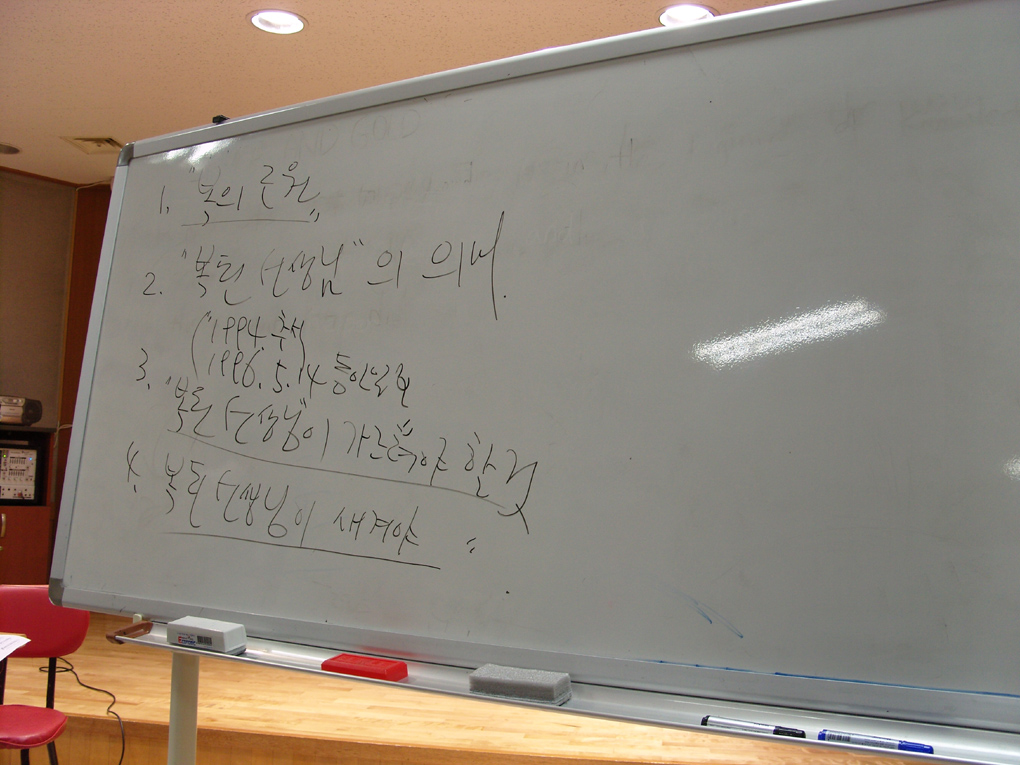 1. "복의 근원"
2. "복된 선생님"의 의미.
(1994. 추서
1996. 5. 14
3. "복된 선생님"이 가르쳐야 할 것
4. 복된 선생님이 새겨야 〃